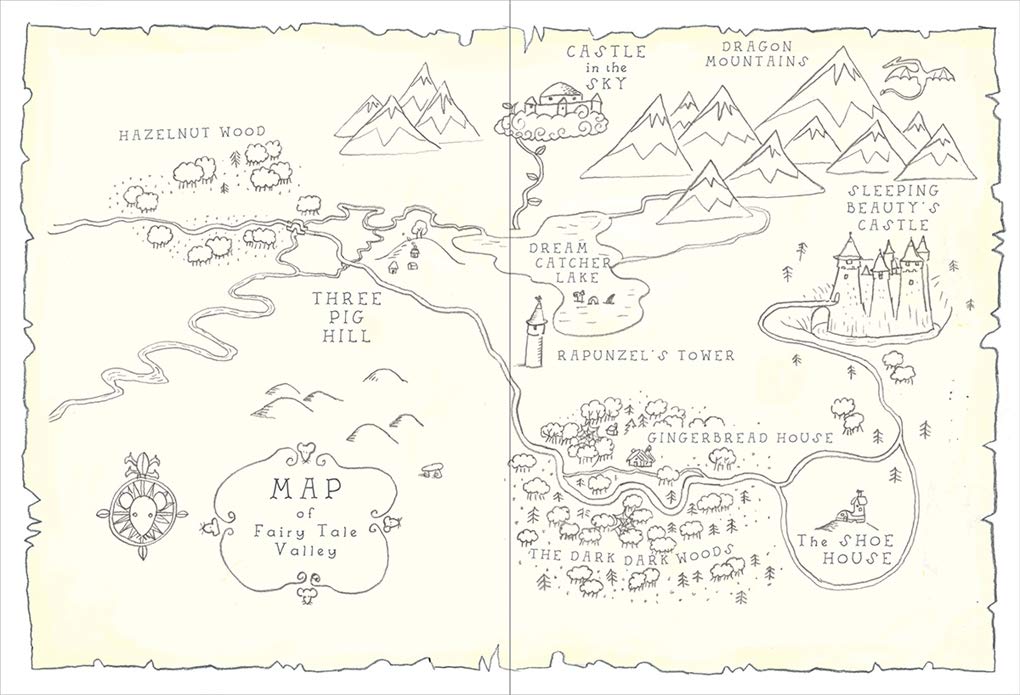 CASTLE
in the
SKY
DRAGON
MOUNTAINS
HAZELNUT WOOD
SLEEPING
BEAUTY'S
CASTLE
DREAM
CATCHER
LAKE
THREE
PIG
HILL
RAPUNZEL'S TOWER
GINGERBREAD HOUSE
MAP
of
Fairy Tale
Valley
The SHOE
HOUSE
THE DARK DARK WOODS